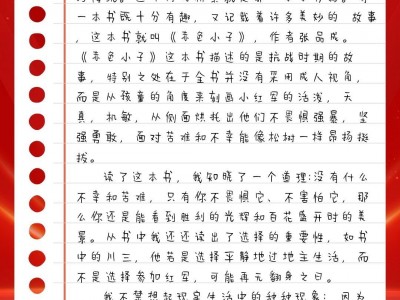 一本书既十分有趣，又记载着许多美妙的 故事
，这本书就叫《赤色小子》，作者张品成。
《赤色小子》这本书描述的是抗战时期的故
事，特别之处在于全书并没有采用成人视角，
而是从孩童的角度来刻画小红军的活泼，天
真，机敏，从侧面烘托出他们不畏惧强暴，坚
强勇敢，面对苦难和不幸能像松树一样昂扬挺
拔。
读了这本书，我知晓了一个道理:没有什么
不幸和苦难，只有你不畏惧它、不害怕它，那
么你还是能看到胜利的光辉和百花盛开时的美
景。从书中我还还读出了选择的重要性，如书
中的川三，他若是选择平静地过地主生活，而
不是选择参加红军，可能再无翻身之日。
我不禁想起现是生活中的种种现象：因为